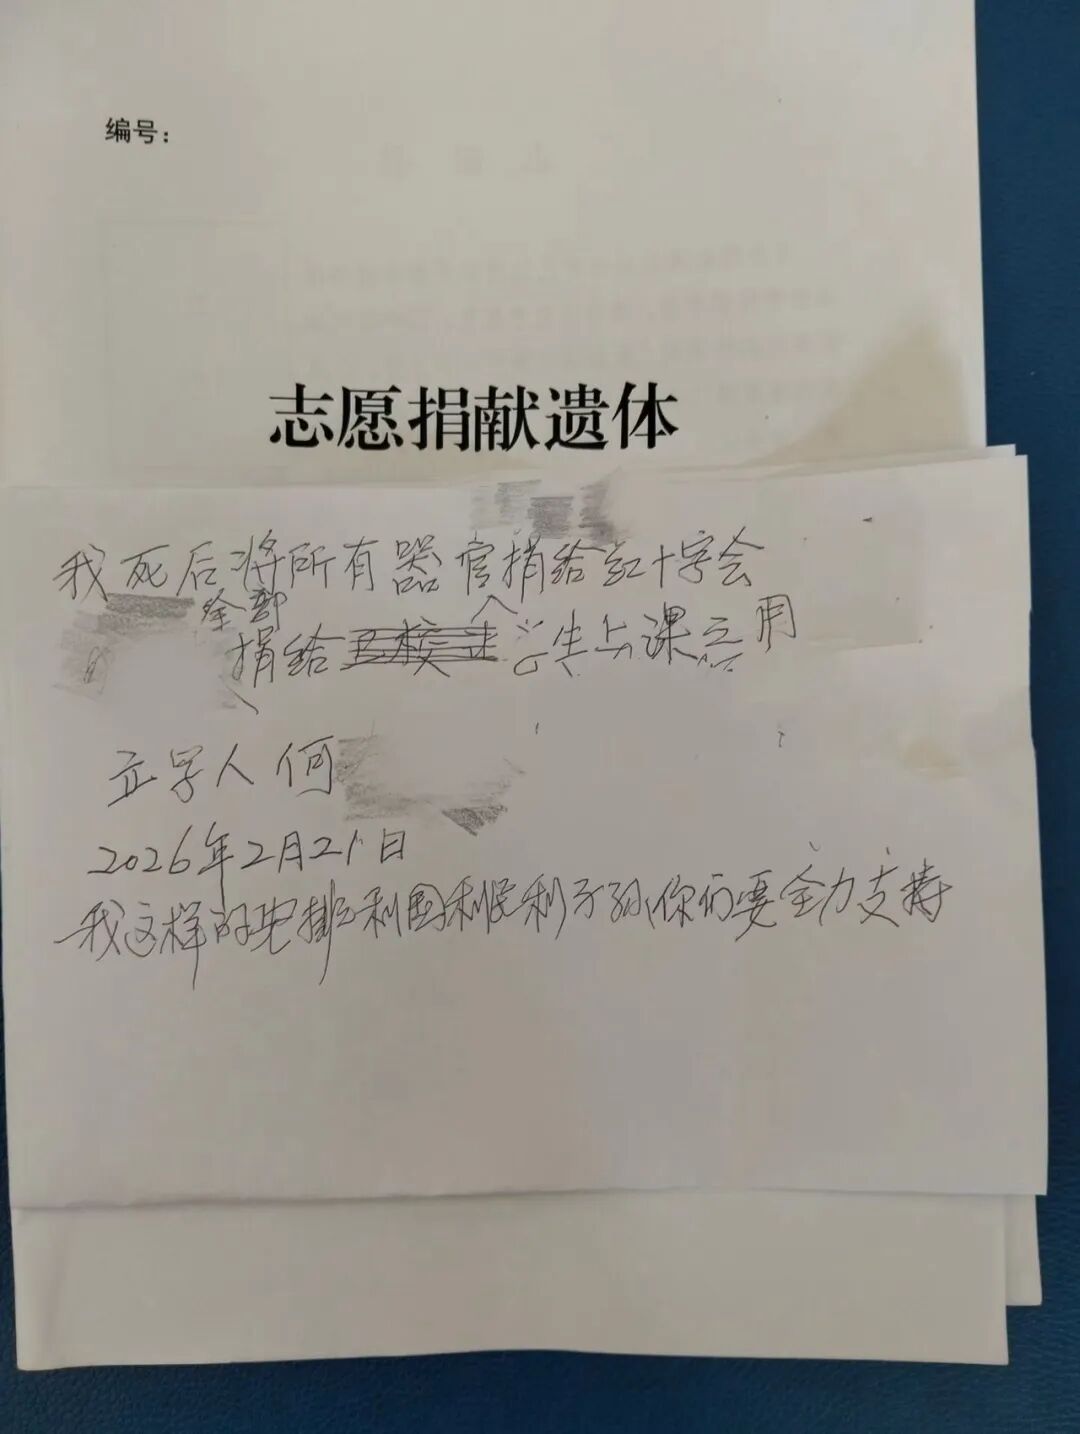 编号：
志愿捐献遗体
我死后将所有器官捐给红十字会
全部
捐给学生上课
用
立字人何
2026年2月21日
我这样的安排利国利民利子孙,你们要全力支持